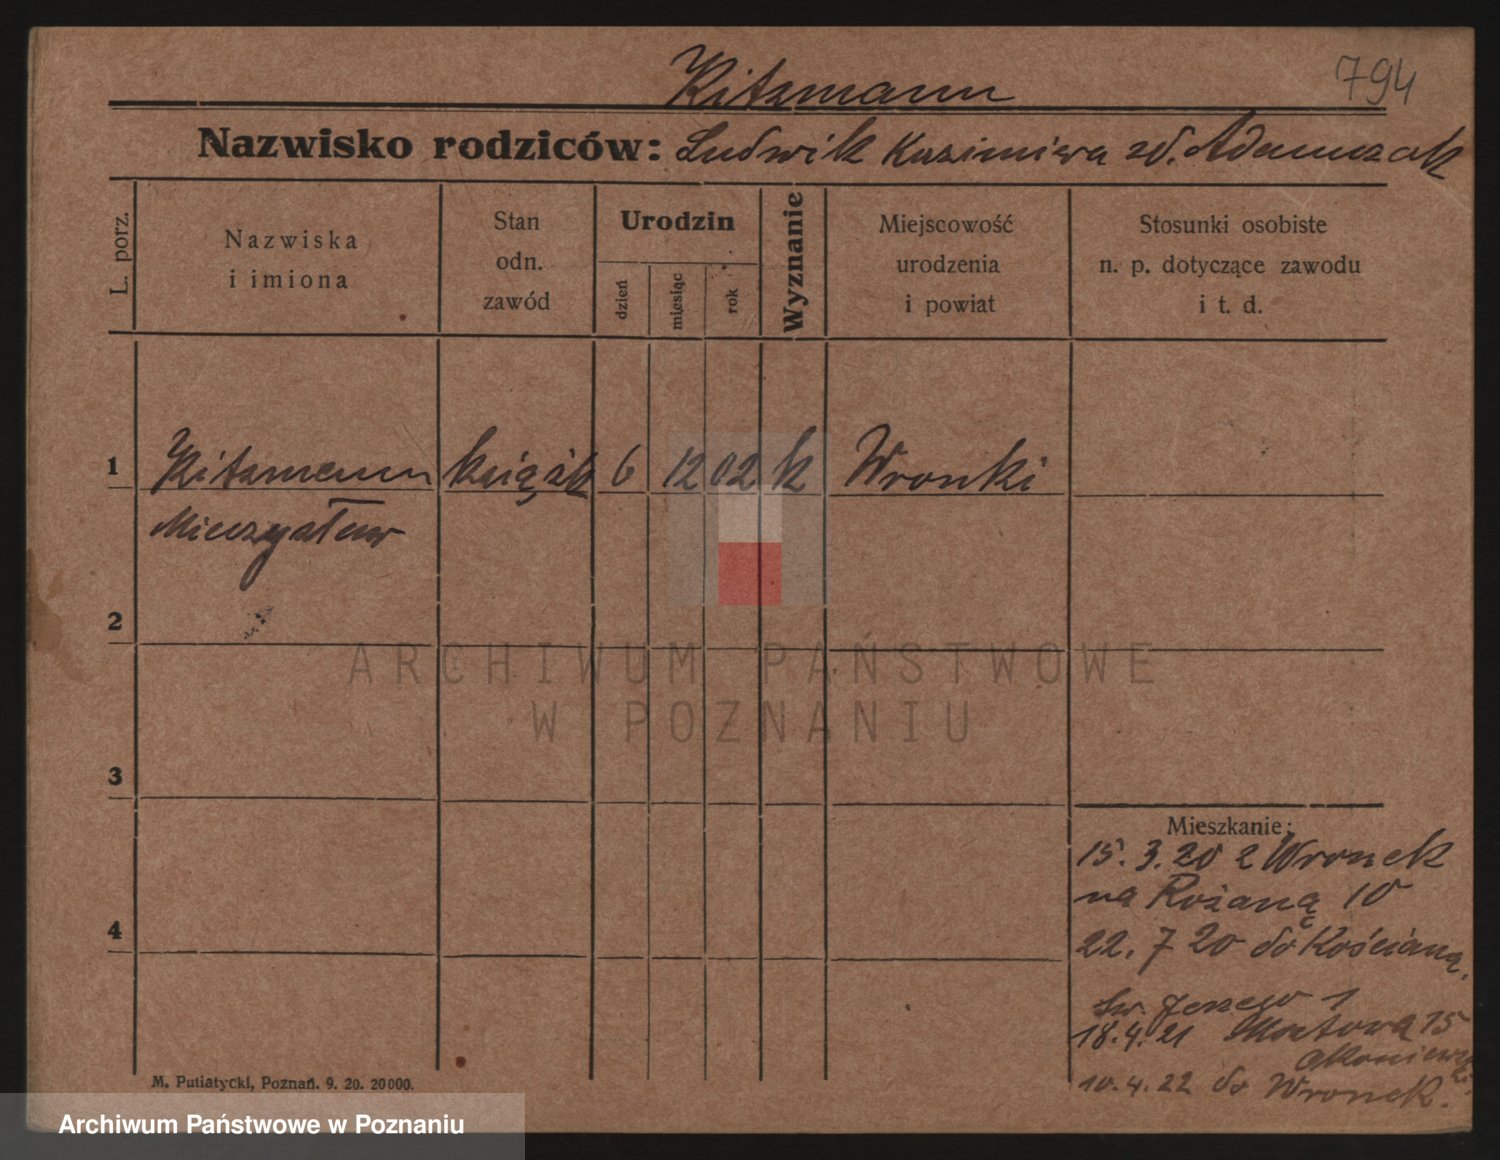 Kitzmann
794
Nazwisko rodziców: Ludwik Kazimiera zd. Adamczak
L. porz.
Nazwiska
i imiona
Stan
odn.
zawód
Urodzin
dzień
miesiąc
rok
Wyznanie
Miejscowość
urodzenia
i powiat
Stosunki osobiste
n. p. dotyczące zawodu
i t. d.
1 Kitzmann książk 6 12 02 k Wronki
Mieczysław
2
ARCHIWUM PAŃSTWOWE
W POZNANIU
3
4
Mieszkanie:
15. 3. 20 z Wronek
na Różaną 10
22. 7 20 do Kościana,
Św. Jerzego 1
18.4.21 15
10.4.22 do Wronek.
M. Putiatycki, Poznań. 9. 20. 20000.
Archiwum Państwowe w Poznaniu